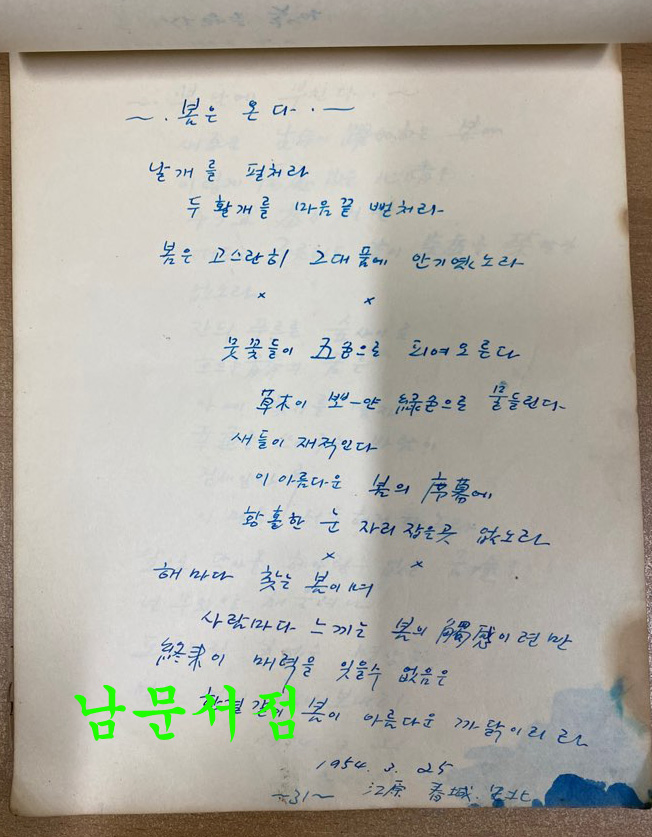 ~. 봄은 온다. ~
날개를 펼처라
두 활개를 마음끝 뻗처라
봄은 고스란히 그대 품에 안기였노라
× ×
뭇꽃들이 五色으로 피여오른다
草木이 뽀-얀 綠色으로 물들린다
새들이 재적인다
이 아름다운 봄의 席幕에
황홀한 눈 자리 잡을곳 없노라
× ×
해마다 찾는 봄이며
사람마다 느끼는 봄의 觸感이련만
終末이 매력을 잇을수 없음은
봄이 아름다운 까닭이리라
1954. 3. 25
江原 春城
~31~
남문서점